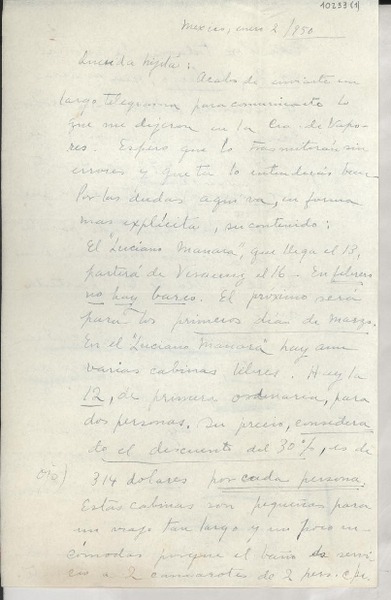 10233 (1)
Mexico, enero 2/950
Querida hijita:
Acabo de enviarte un
largo telegrama para comunicarte lo
que me dijeron en la Cia. de Vapo-
res. Espero que lo trasmitirán sin
errores y que tu lo entenderás bien.
Por las dudas aqui va, en forma
mas explícita, su contenido:
El "Luciano Manara", que llega el 13,
partirá de Veracruz el 16. En febrero
no hay barco. El próximo será
para los primeros dias de marzo.
En el "Luciano Manara" hay aun
varias cabinas libres. Hay la
12, de primera ordinaria, para
dos personas. Su precio, considera
do el descuento del 30%, es de
314 dolares por cada persona.
Estas cabinas son pequeñas para
un viaje tan largo y un poco in-
cómodas porque el baño es servi-
cio a 2 camarotes de 2 pers. c/u.